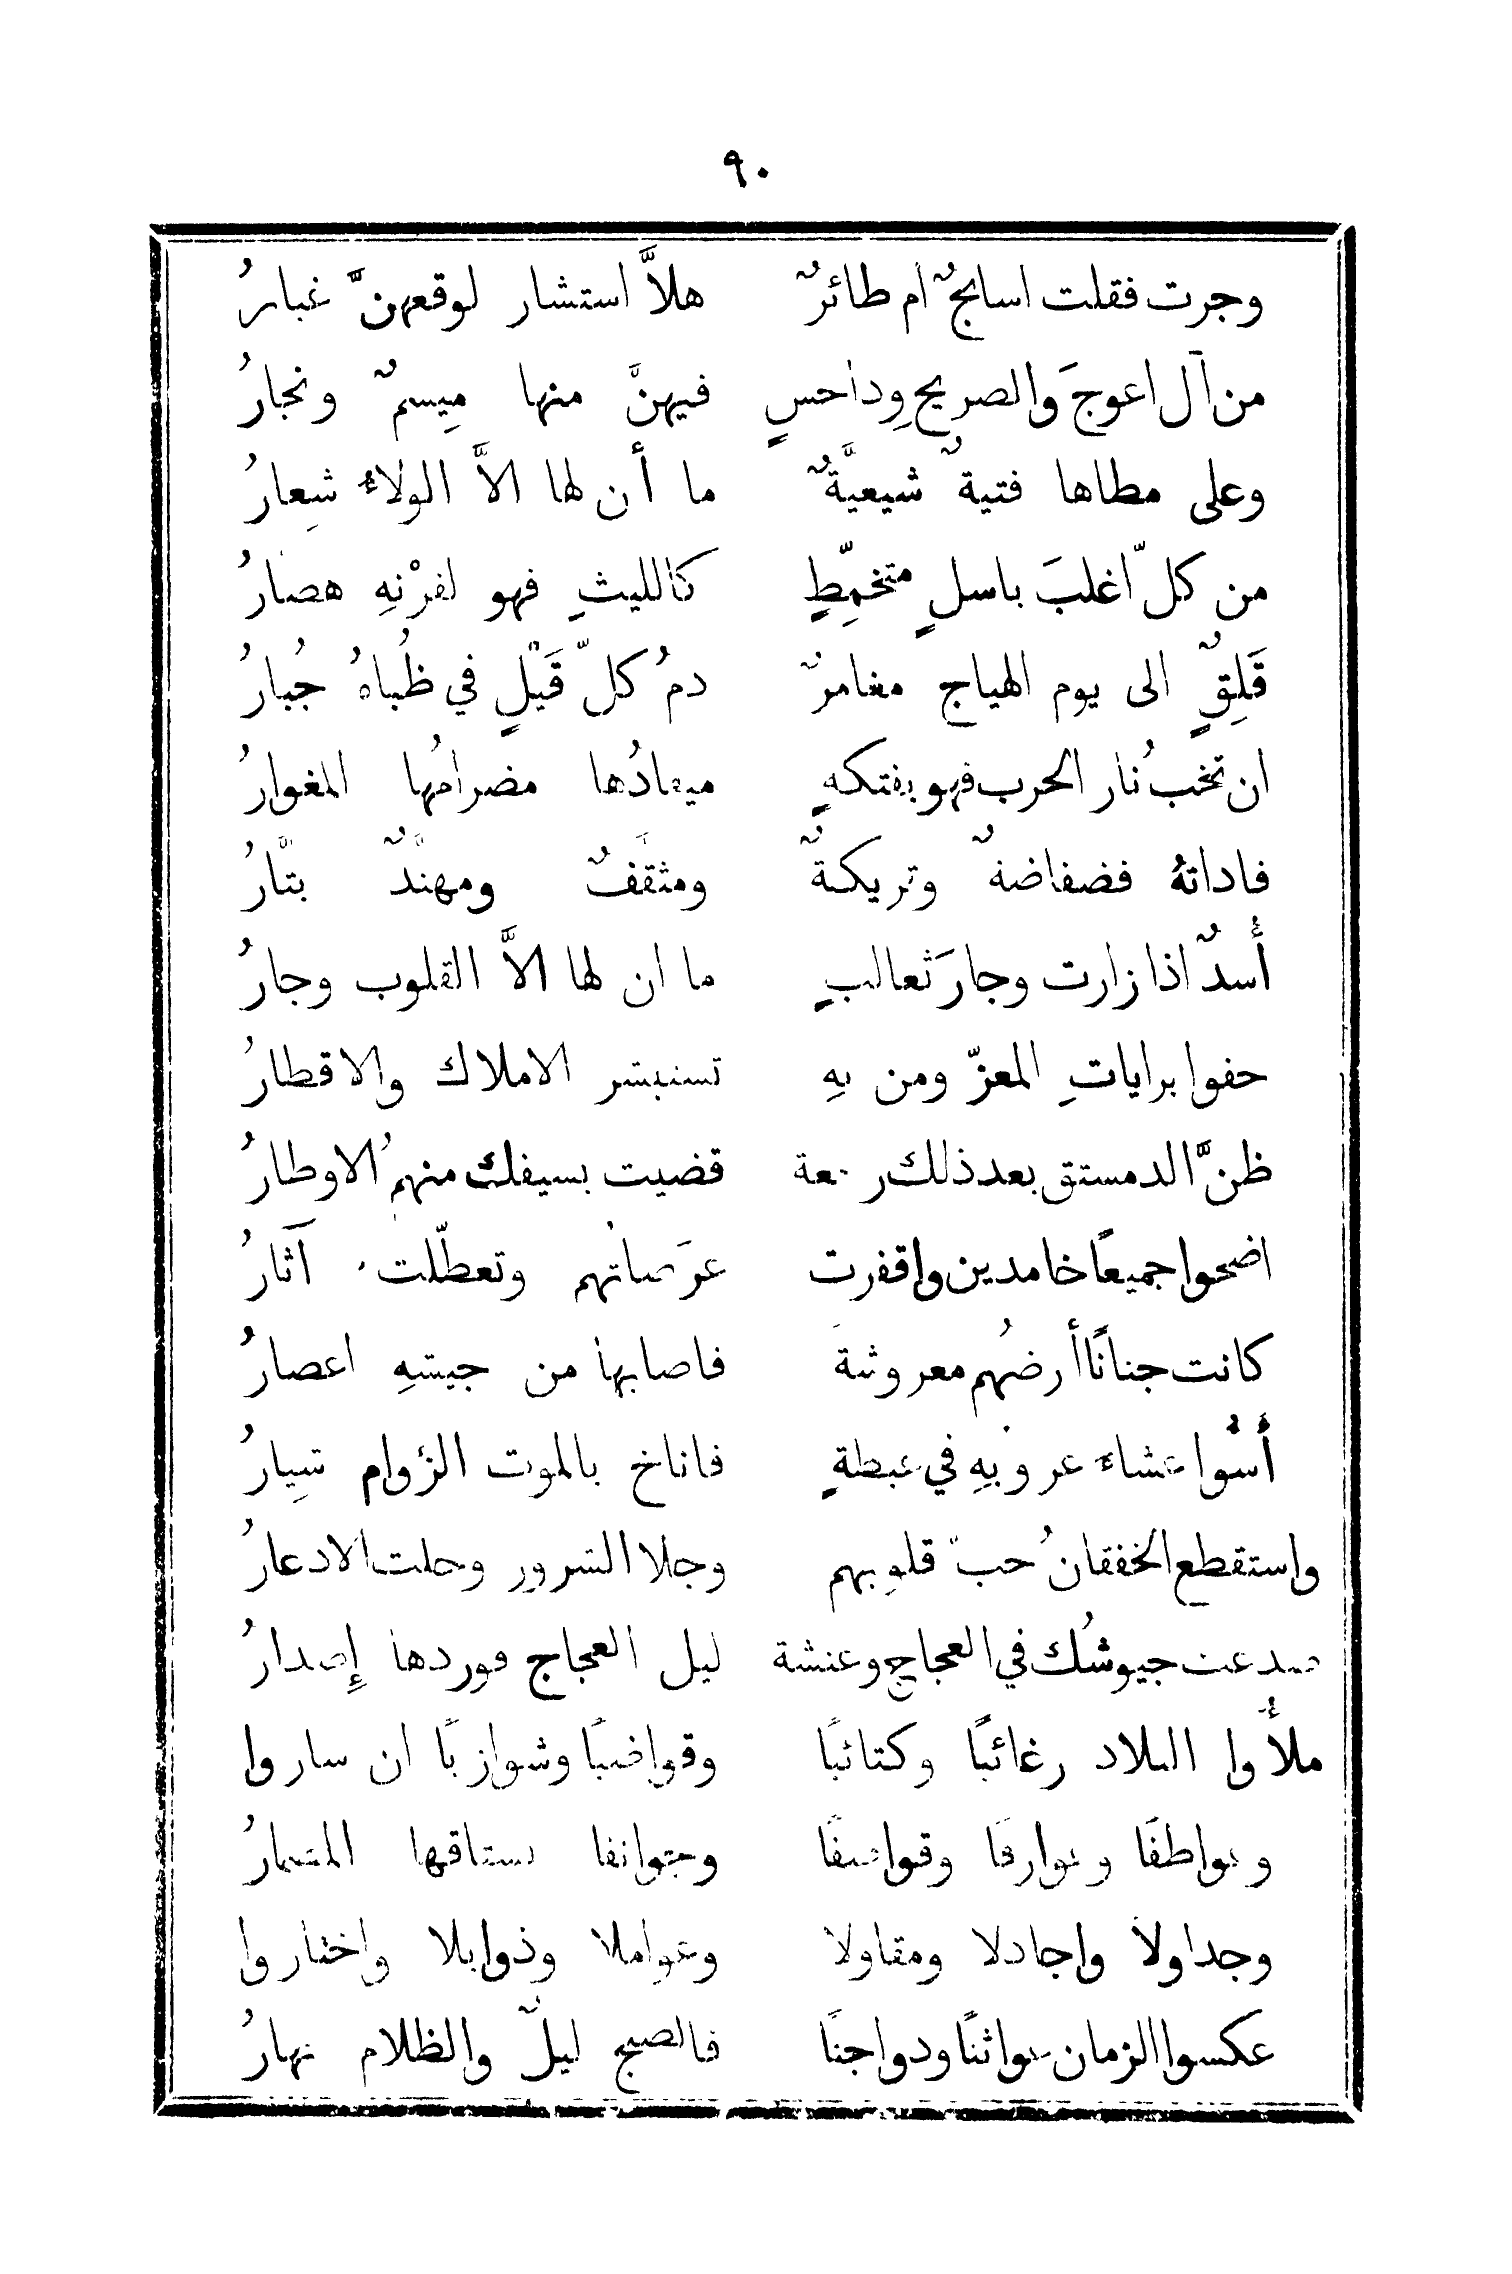 ٩٠
وجرت فقلت اسابحٌ ام طائرٌ هلاَّ استشار لوقعهنَّ غبارُ
من آل اعوجَ والصريحِ وداحسٍ فيهنَّ منها مِيسمٌ ونجارُ
وعلى مطاها فتيةٌ شيعيَّةٌ ما أن لها الاَّ الولاءُ شِعارُ
من كلّ اغلبَ باسلٍ متخمِّطٍ كالليثِ فهو لقرْنهِ هصارُ
قَلِقٍ الى يوم الهياج مغامرٌ دمُ كلّ قَيْلٍ في ظُباهُ جُبارُ
ان تخبُ نار الحرب فهو بفتكهِ ميعادُها مضرامُها المغوارُ
فاداتهُ فضفاضةٌ وتريكةٌ ومثقَّفٌ ومهنَّدٌ بتَّارُ
أُسدٌ اذا زارت وجارَ ثعالبٍ ما ان لها الاَّ القلوب وجارُ
حفوا براياتِ المعزّ ومن بهِ تستبشر الاملاك والاقطارُ
ظنَّ الدمستق بعد ذلك رجعة قضيت بسيفك منهمُ الاوطارُ
اضحوا جميعًا خامدين واقفرت عرَصاتُهم وتعطّلت آثارُ
كانت جنانًا أرضُهم معروشة فاصابها من جيشهِ اعصارُ
أُسُوا عشاء عروبهِ في غبطةٍ فاناخ بالموت الزؤام شِيارُ
واستقطع الخفقانُ حبّ قلوبهم وجلا السرور وحلت الادعارُ
صدعت جيوشُك في العجاج وعنشة ليل العجاج فوردها إِصدارُ
ملأُوا البلاد رغائبًا وكتائبًا وقواضبًا وشوازبًا ان ساروا
وعواطفًا وعوارفًا وقواصفًا وجوانفا يستاقها المضمارُ
وجداولا واجادلا ومقاولا وعواملا وذوابلا واختاروا
عكسوا الزمان عواثنًا ودواجنًا فالصبح ليلٌ والظلام نهارُ